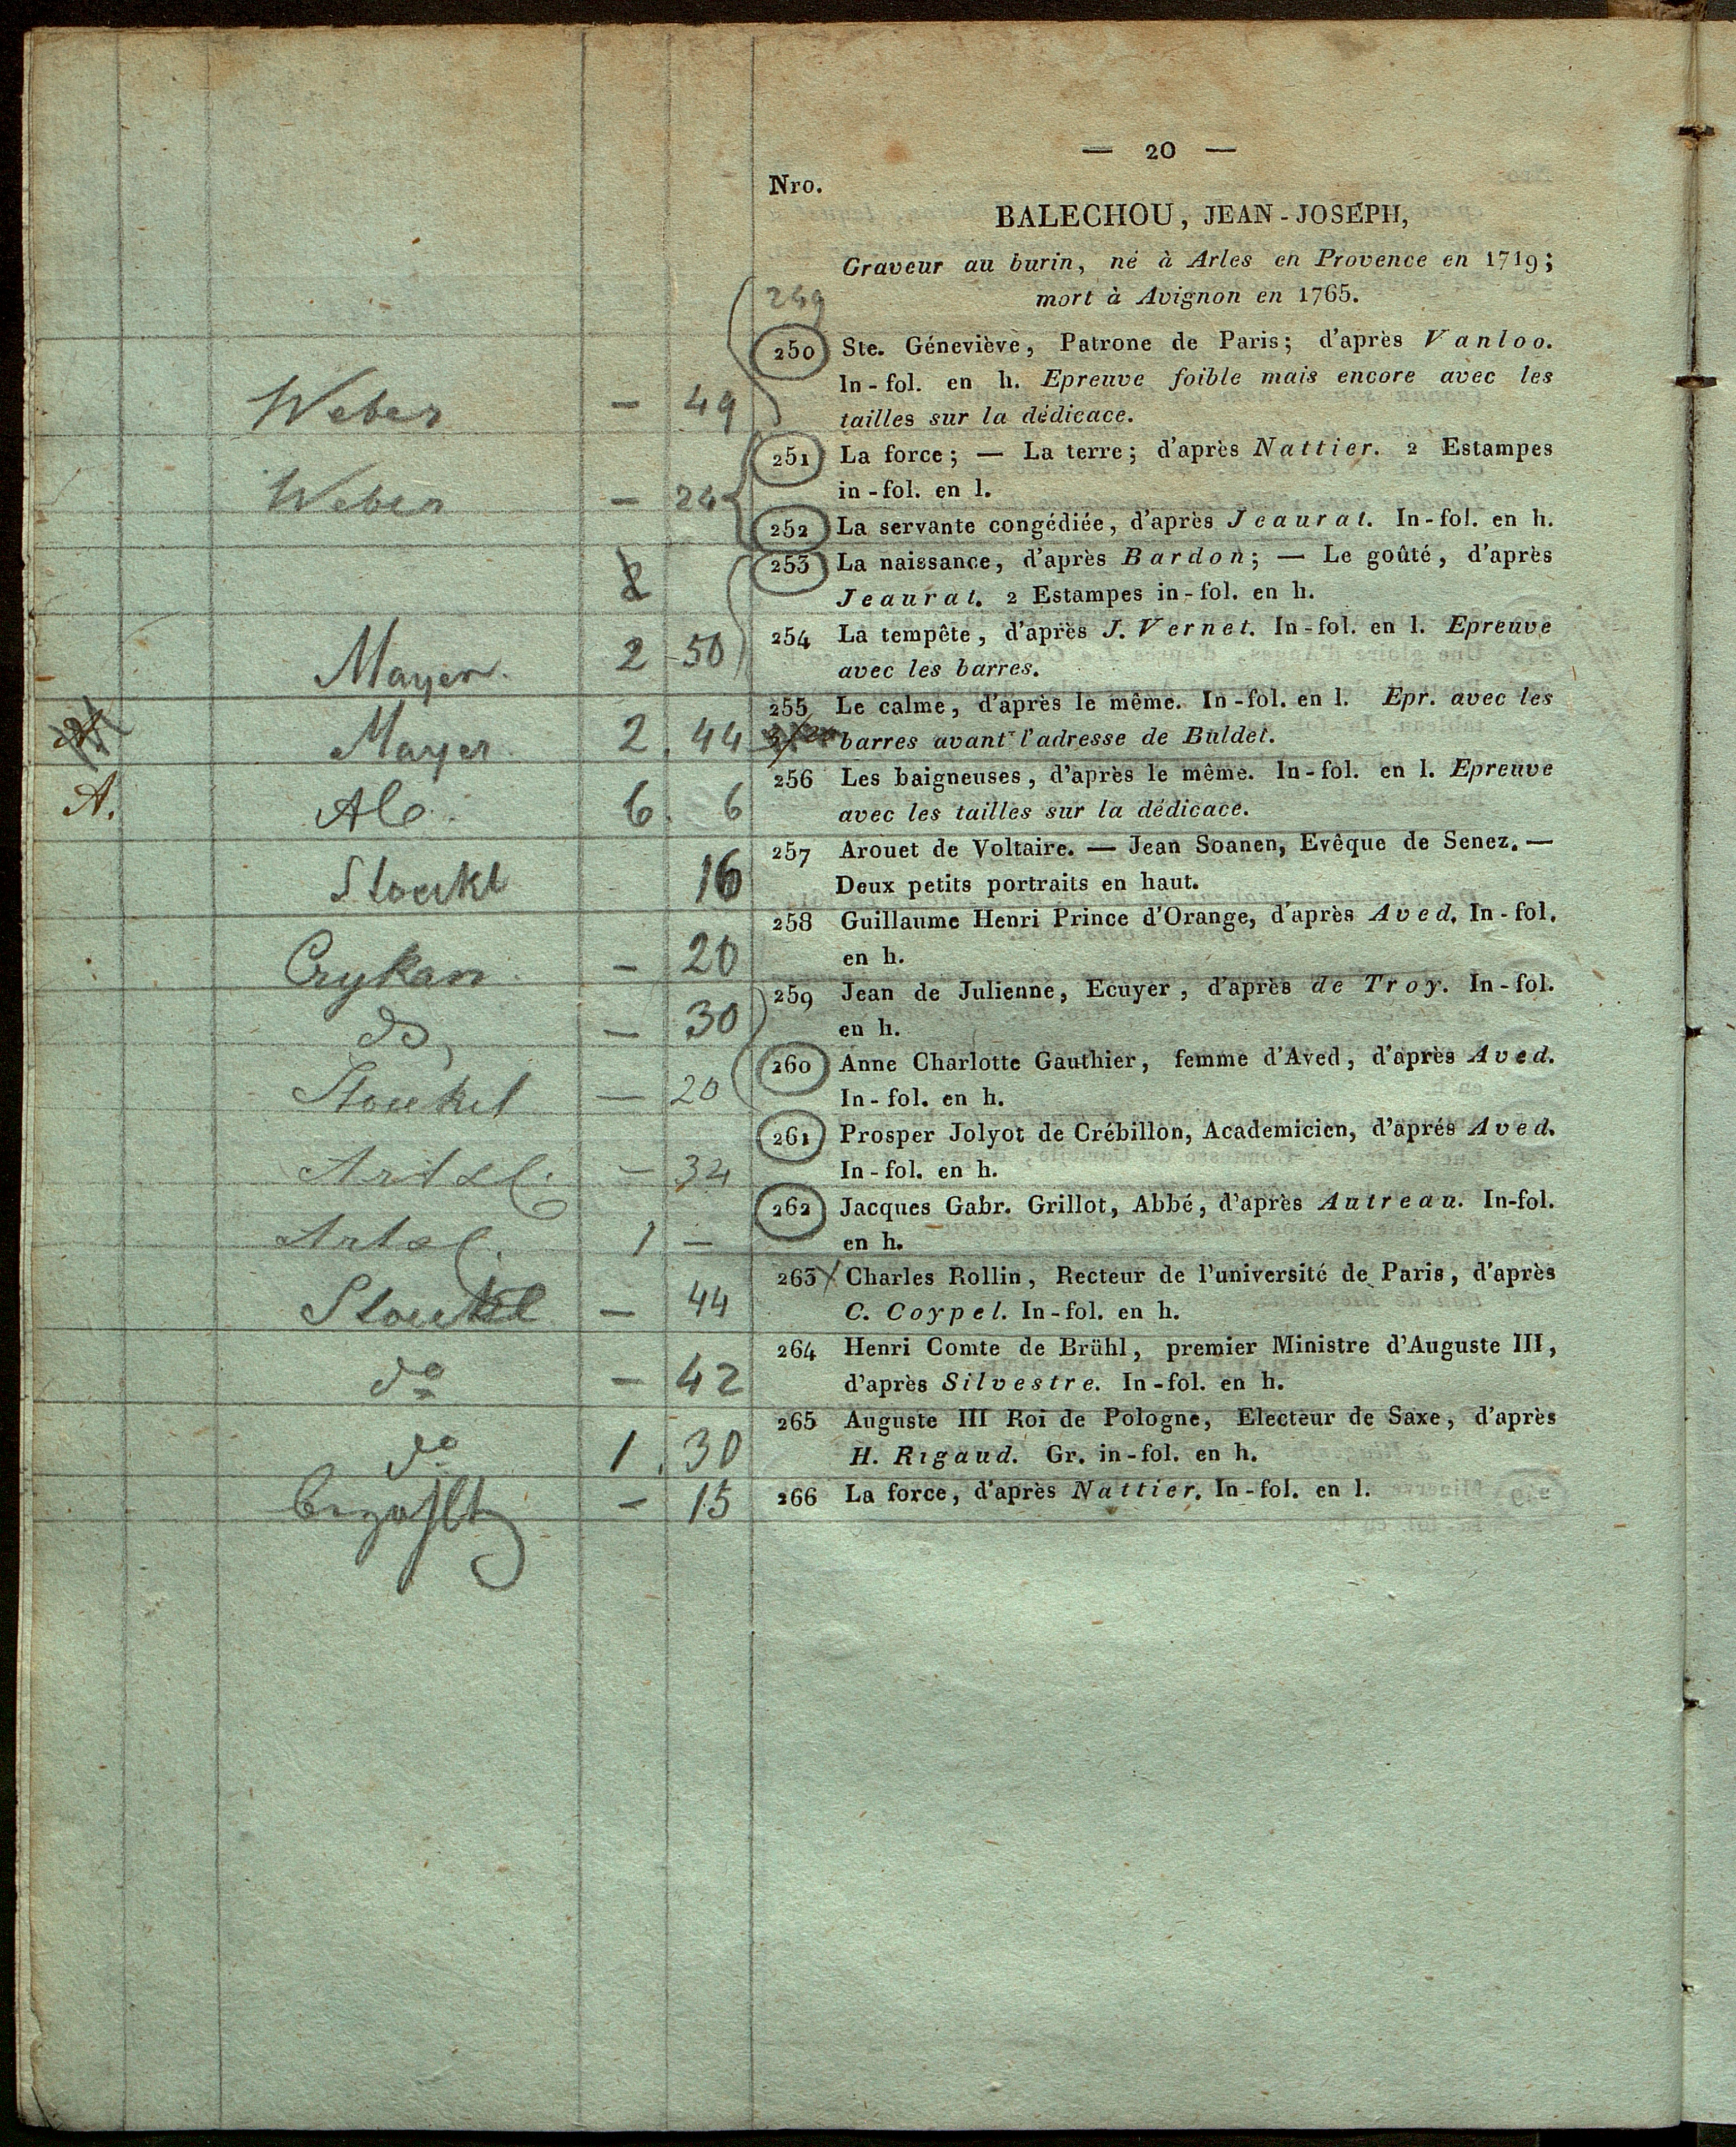 — 20 —
Nro.
BALECHOU, JEAN-JOSEPH,
Graveur au burin, né à Arles en Provence en 1719;
mort à Avignon en 1765.
249
250 Ste. Géneviève, Patrone de Paris; d'après Vanloo.
In-fol. en h. Epreuve foible mais encore avec les
Weber — 49 tailles sur la dédicace.
251 La force; — La terre; d'après Nattier. 2 Estampes
Weber — 24 in-fol. en l.
252 La servante congédiée, d'après Jeaurat. In-fol. en h.
253 La naissance, d'après Bardon; — Le goûté, d'après
2 Jeaurat. 2 Estampes in-fol. en h.
254 La tempête, d'après J. Vernet. In-fol. en l. Epreuve
Mayer. 2 50 avec les barres.
255 Le calme, d'après le même. In-fol. en l. Epr. avec les
Mayer 2. 44 barres avant l'adresse de Buldet.
256 Les baigneuses, d'après le même. In-fol. en l. Epreuve
A. Alb. 6. 6 avec les tailles sur la dédicace.
257 Arouet de Voltaire. — Jean Soanen, Evêque de Senez. —
Stoekl 16 Deux petits portraits en haut.
258 Guillaume Henri Prince d'Orange, d'après Aved. In-fol.
— 20 en h.
259 Jean de Julienne, Ecuyer, d'après de Troy. In-fol.
do — 30 en h.
260 Anne Charlotte Gauthier, femme d'Aved, d'après Aved.
Stoekel — 20 In-fol. en h.
261 Prosper Jolyot de Crébillon, Academicien, d'aprés Aved.
— 34 In-fol. en h.
262 Jacques Gabr. Grillot, Abbé, d'après Autreau. In-fol.
1 — en h.
263 Charles Rollin, Recteur de l'université de Paris, d'après
Stoekel — 44 C. Coypel. In-fol. en h.
264 Henri Comte de Brühl, premier Ministre d'Auguste III,
do — 42 d'après Silvestre. In-fol. en h.
265 Auguste III Roi de Pologne, Electeur de Saxe, d'après
do 1. 30 H. Rigaud. Gr. in-fol. en h.
— 15 266 La force, d'après Nattier. In-fol. en l.